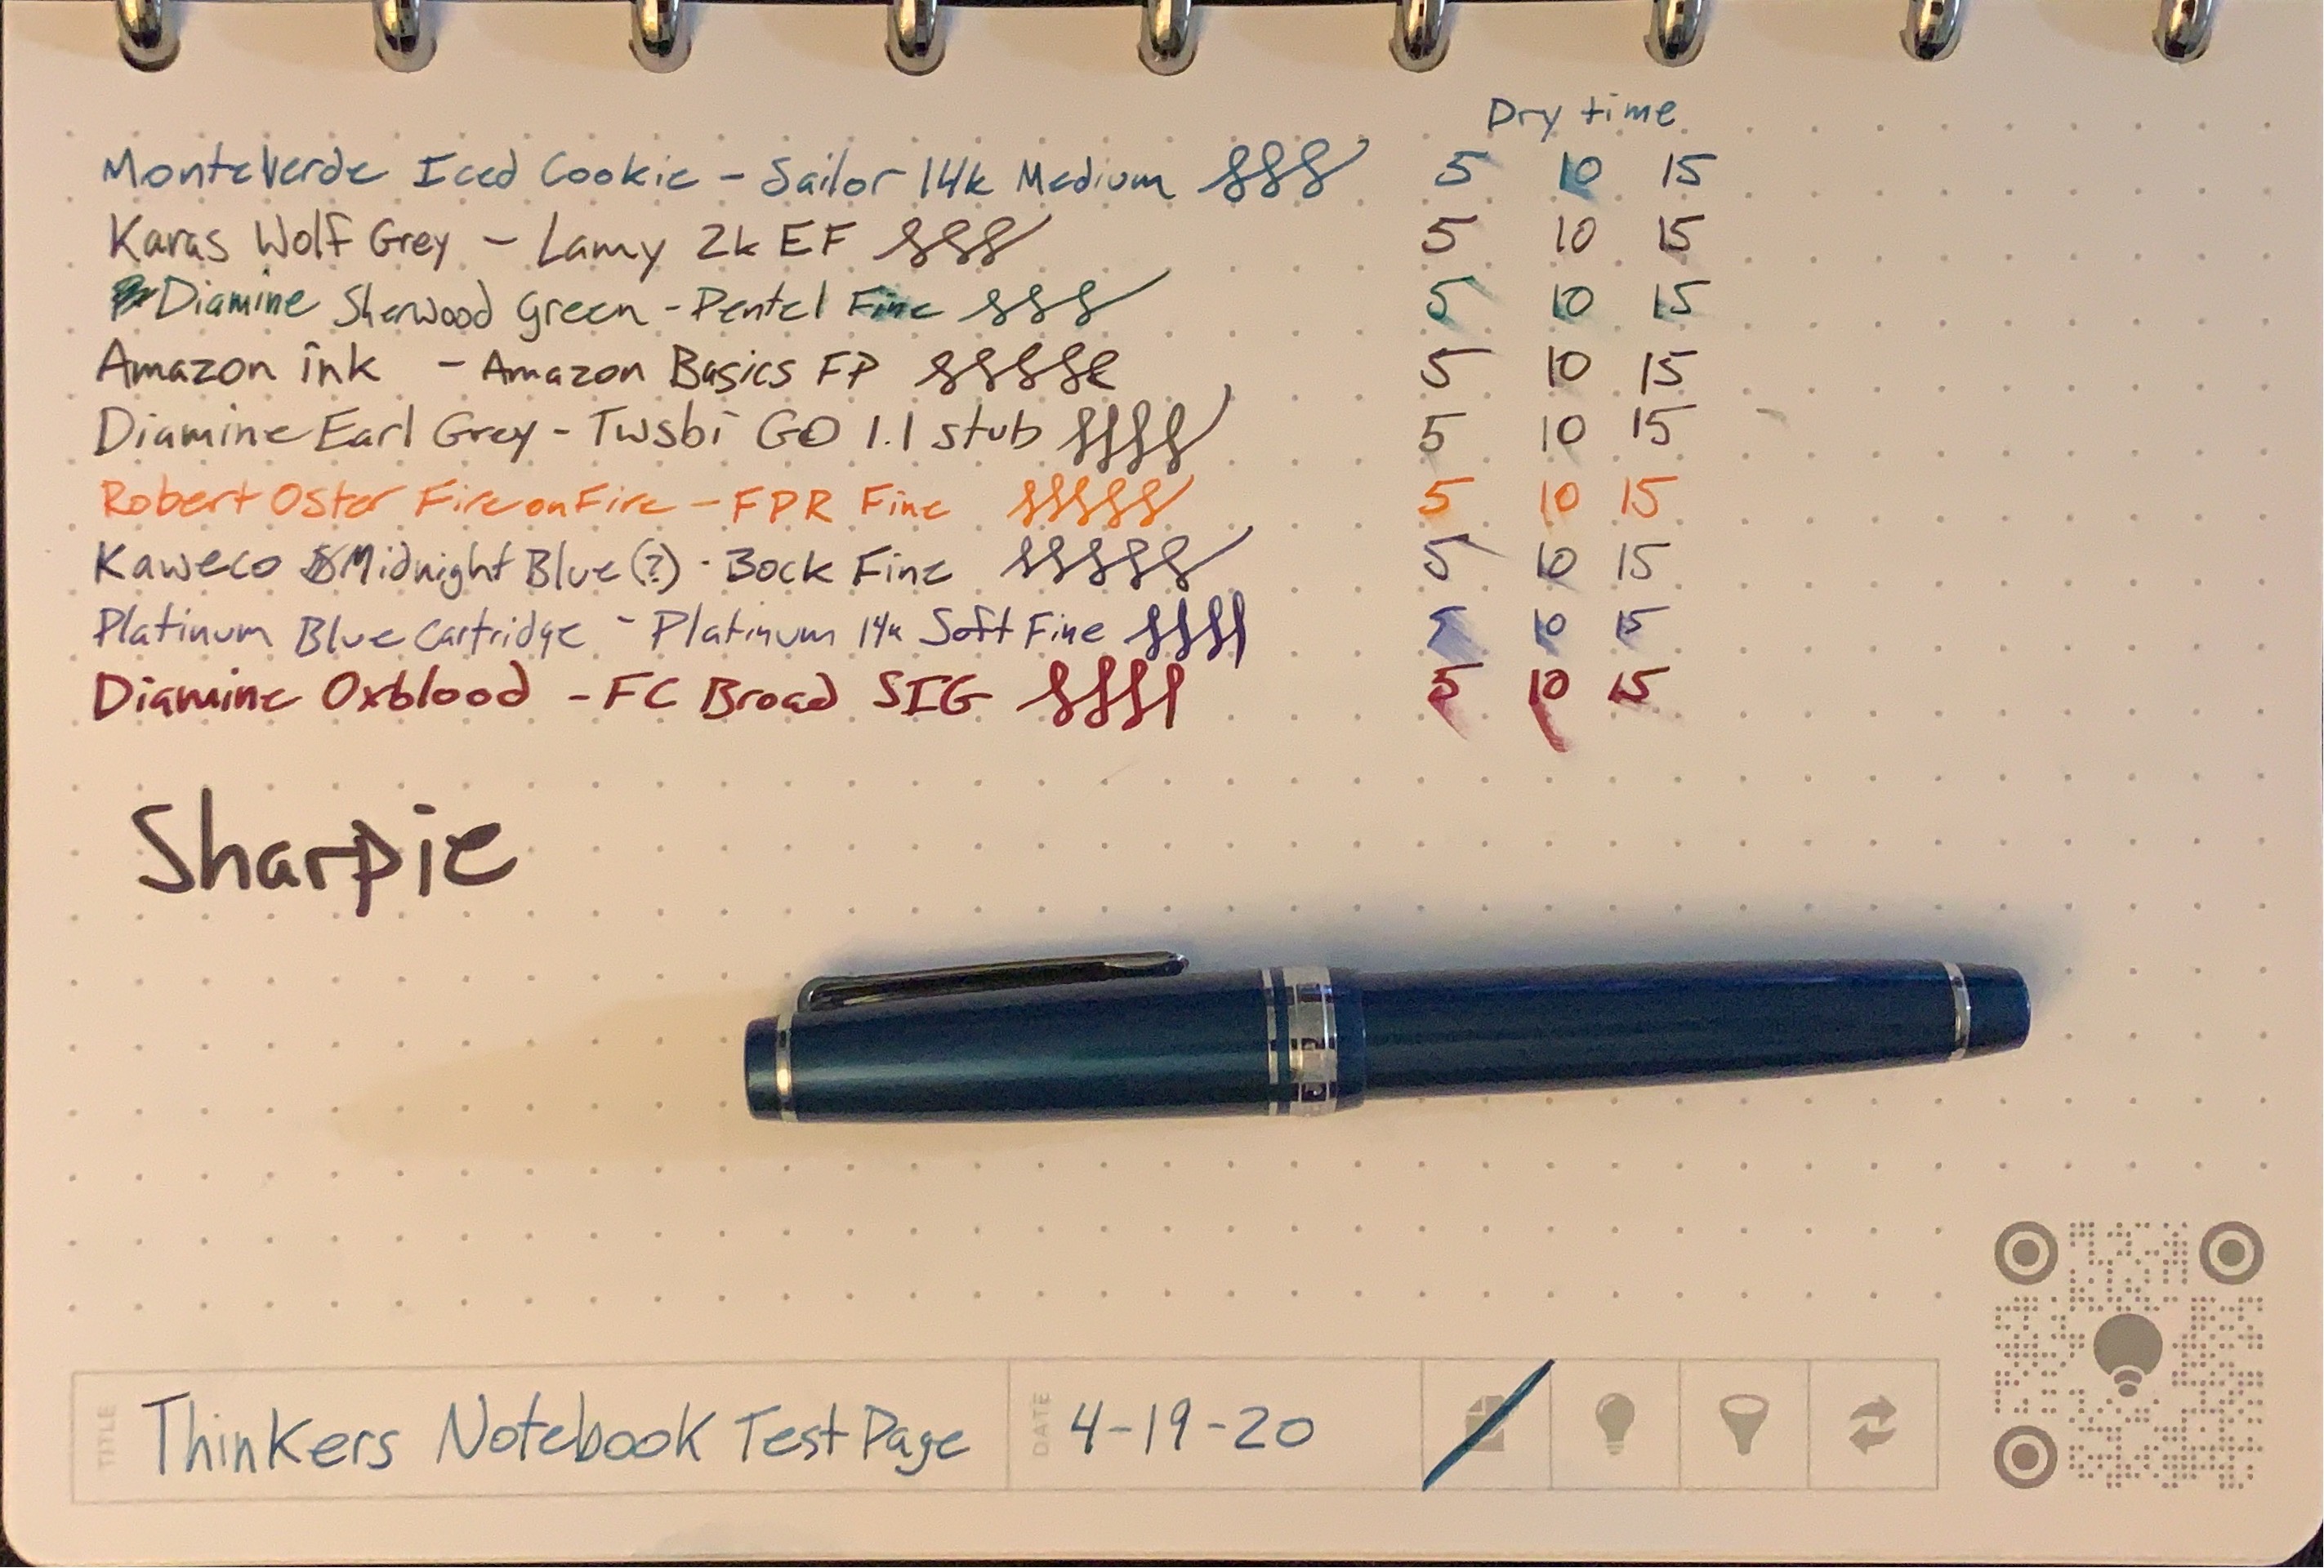 Dry time
Monteverde Iced Cookie - Sailor 14k Medium 5 10 15
Karas Wolf Grey - Lamy 2k EF 5 10 15
Diamine Sherwood Green - Pentel Fine 5 10 15
Amazon ink - Amazon Basics FP 5 10 15
Diamine Earl Grey - Twsbi GO 1.1 stub 5 10 15
Robert Oster Fire on Fire - FPR Fine 5 10 15
Kaweco Midnight Blue (?) - Bock Fine 5 10 15
Platinum Blue Cartridge - Platinum 14k Soft Fine 5 10 15
Diamine Oxblood - FC Broad SIG 5 10 15
Sharpie
TITLE Thinkers Notebook Test Page DATE 4-19-20